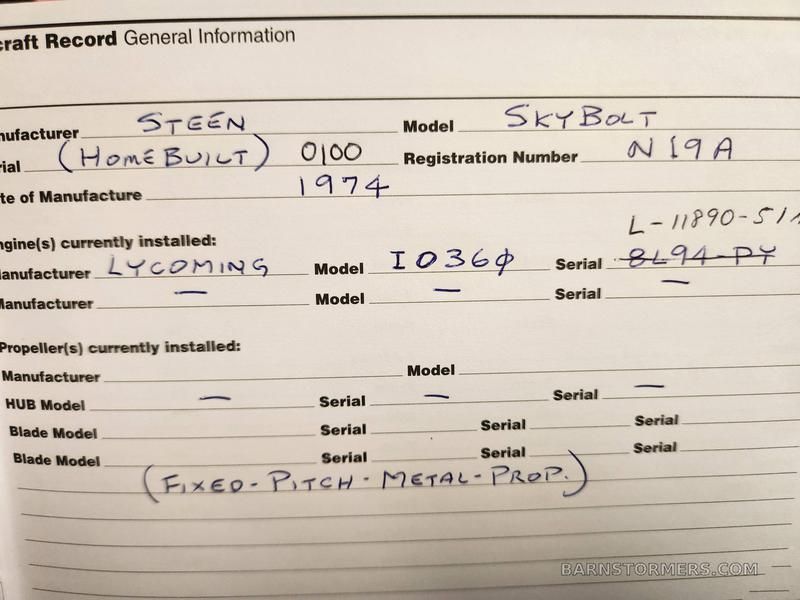 craft Record General Information
nufacturer STEEN Model SKYBOLT
rial (HOMEBUILT) 0100 Registration Number N19A
te of Manufacture 1974
L-11890-51
ngine(s) currently installed:
anufacturer LYCOMING Model IO360 Serial 8L94-PY
Manufacturer — Model — Serial —
Propeller(s) currently installed:
Manufacturer Model
HUB Model — Serial — Serial —
Blade Model Serial Serial Serial
Blade Model Serial Serial Serial
(FIXED-PITCH-METAL-PROP.)
BARNSTORMERS.COM